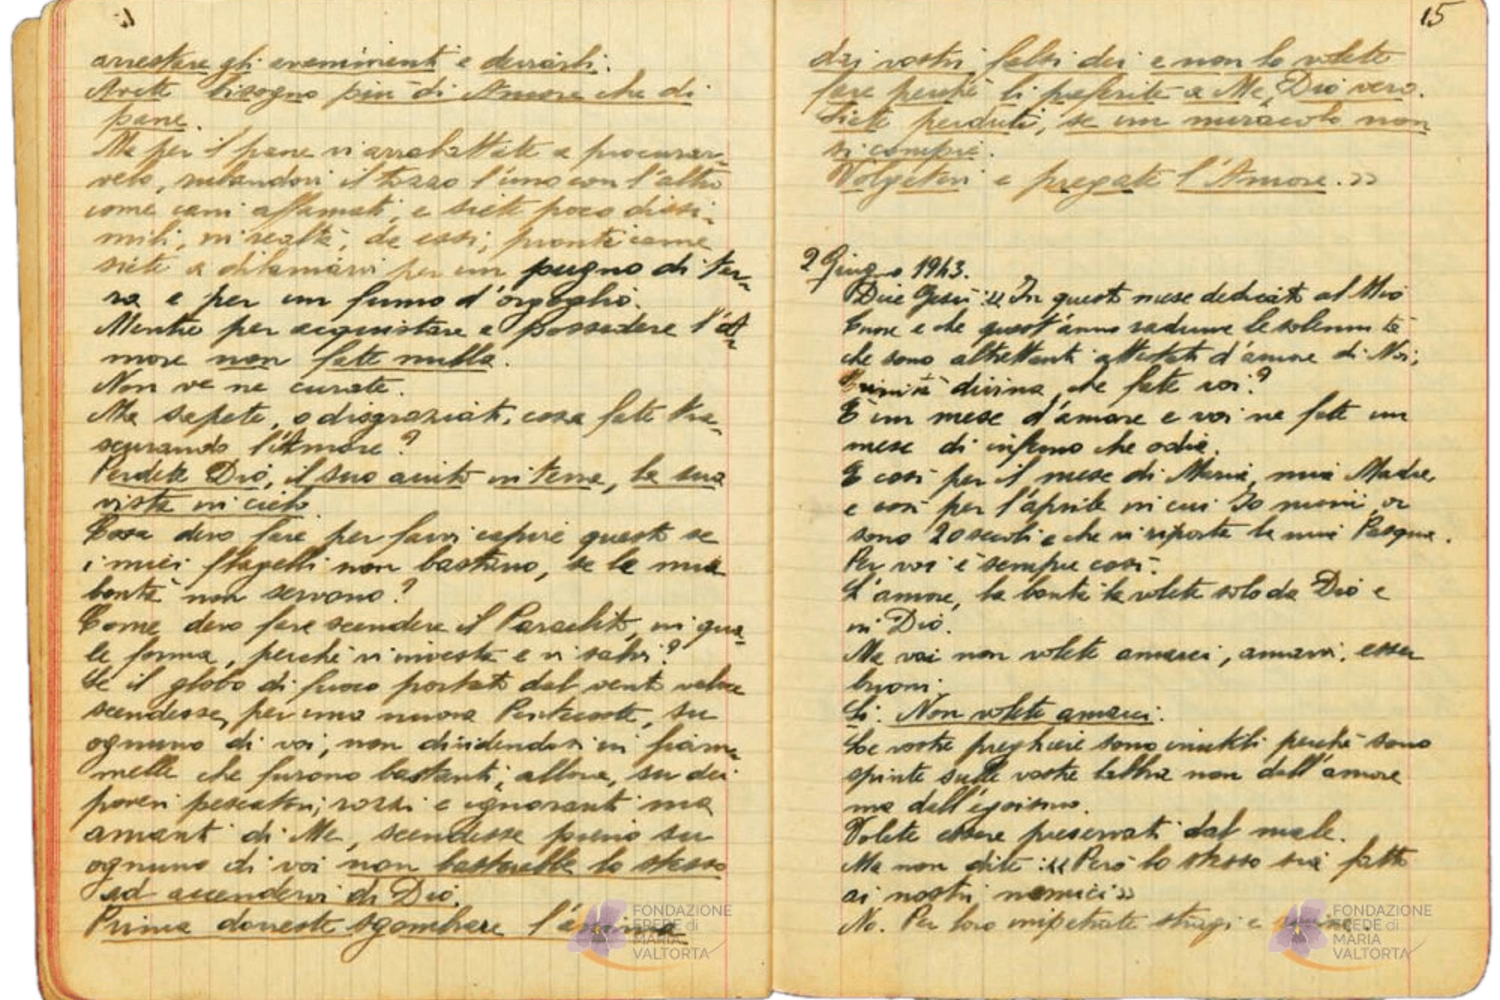 arrestare gli avvenimenti e duraristi.
Avete bisogno più di Amore che di
pane.
Ma per il pane vi arrabattate a procurar-
velo, rubandovi il tozzo l'uno con l'altro
come cani affamati, e siete poco dissi-
mili, in realtà, da essi, pronti come
siete a dilaniarvi per un pugno di ter-
ra e per un fumo d'orgoglio.
Mentre per acquistare e possedere l'A-
more non fate nulla.
Non ve ne curate.
Ma sapete, o disgraziati, cosa fate tra-
scurando l'Amore?
Perdete Dio, il suo aiuto in terra, la sua
vista in cielo.
Cosa devo fare per farvi capire questo se
i miei flagelli non bastano, se la mia
bontà non servono?
Come devo fare scendere il Paraclito, in qua-
le forma, perché vi investa e vi salvi?
Se il globo di fuoco portato dal vento veloce
scendesse, per una nuova Pentecoste, su
ognuno di voi, non dividendosi in fiam-
melle che furono bastanti, allora, su dei
poveri pescatori, rozzi e ignoranti ma
amanti di Me, scendesse pieno su
ognuno di voi non basterebbe lo stesso
ad accendervi di Dio.
Prima dovreste sgombrare l'anima
15
dai vostri falsi dei e non lo volete
fare perché li preferite a Me, Dio vero.
Siete perduti, se un miracolo non
si compie.
Volgetevi e pregate l'Amore.»
2 Giugno 1943.
Dice Gesù: «In questo mese dedicato al Mio
Cuore e che quest'anno raduna le solennità
che sono altrettanti attestati d'amore di Noi,
Trinità divina, che fate voi?
È un mese d'amore e voi ne fate un
mese di inferno che odia.
E così per il mese di Maria, mia Madre,
e così per l'aprile in cui Io morii, or
sono 20 secoli e che vi riporta la mia Pasqua.
Per voi è sempre così.
L'amore, la bontà la volete solo da Dio e
in Dio.
Ma voi non volete amarci, amarvi, esser
buoni.
Sì. Non volete amarci.
Le vostre preghiere sono inutili perché sono
spinte sulle vostre labbra non dall'amore
ma dall'egoismo.
Volete essere preservati dal male.
Ma non dite: «Però lo stesso sia fatto
ai nostri nemici»
No. Per loro impetrate stragi e
FONDAZIONE
EREDE di
MARIA
VALTORTA
FONDAZIONE
EREDE di
MARIA
VALTORTA